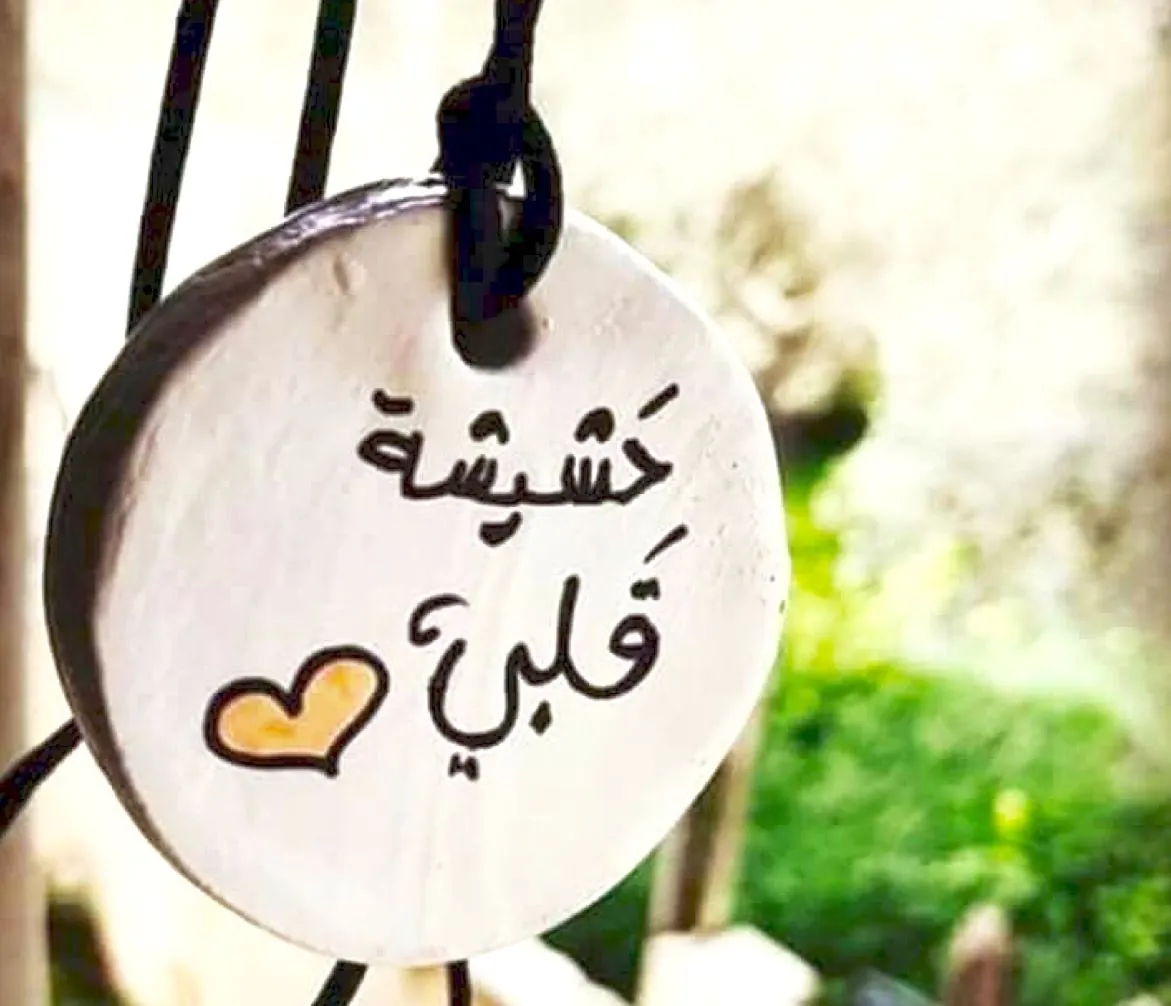 حَشيشة
قَلبيْ